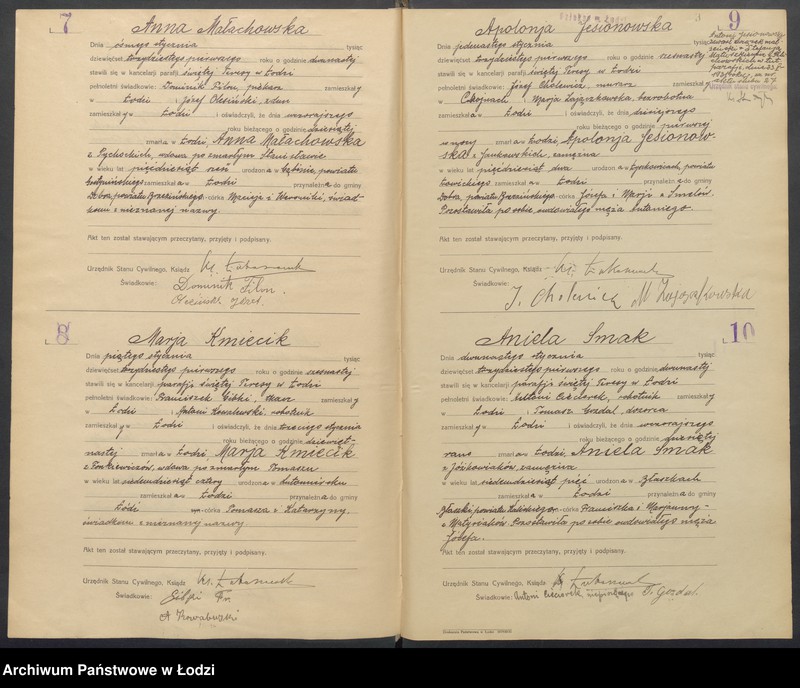 7
Anna Małachowska
Dnia ósmego stycznia tysiąc
dziewięćset trzydziestego pierwszego roku o godzinie dwunastej
stawili się w kancelarji parafji świętej Teresy w Łodzi
pełnoletni świadkowie: Dominik Filon, piekarz zamieszkały
w Łodzi i Józef Olesiński, zdun
zamieszkały w Łodzi i oświadczyli, że dnia wczorajszego
roku bieżącego o godzinie dziesiątej
zmarła w Łodzi, Anna Małachowska
z Pycholskich, wdowa po zmarłym Stanisławie
w wieku lat pięćdziesiąt urodzona w powiatu
zamieszkała w Łodzi przynależna do gminy
Dobra, powiatu Brzezińskiego córka Macieja i Weroniki, świad-
kom z nieznanej nazwy.
Akt ten został stawającym przeczytany, przyjęty i podpisany.
Urzędnik Stanu Cywilnego, Ksiądz
Świadkowie: Dominik Filon.
Olesiński Józef.
8
Marja Kmiecik
Dnia piątego stycznia tysiąc
dziewięćset trzydziestego pierwszego roku o godzinie szesnastej
stawili się w kancelarji parafji świętej Teresy w Łodzi
pełnoletni świadkowie: Franciszek Gibki, tkacz zamieszkały
w Łodzi i Antoni Kowalewski, robotnik
zamieszkały w Łodzi i oświadczyli, że dnia trzeciego stycznia
roku bieżącego o godzinie dziewięt-
nastej zmarła w Łodzi Marja Kmiecik
z Ponkiewiczów, wdowa po zmarłym Tomaszu
w wieku lat siedemdziesiąt cztery urodzona w Antoniewie
zamieszkała w Łodzi przynależna do gminy
Łódź córka Tomasza i Katarzyny,
świadkom z nieznanej nazwy
Akt ten został stawającym przeczytany, przyjęty i podpisany.
Urzędnik Stanu Cywilnego, Ksiądz
Świadkowie: Gibki Fr.
A Kowalewski
9
Apolonja Jesionowska
Dnia jedenastego stycznia tysiąc
dziewięćset trzydziestego pierwszego roku o godzinie szesnastej
stawili się w kancelarji parafji świętej Teresy w Łodzi
pełnoletni świadkowie: Józef Cholewicz, murarz zamieszkały
w Cekojnach i Marja Zajączkowska, bezrobotna
zamieszkała w Łodzi i oświadczyli, że dnia dzisiejszego
roku bieżącego o godzinie pierwszej
w nocy zmarła w Łodzi, Apolonja Jesionow-
ska z Jankowskich, zamężna
w wieku lat pięćdziesiąt dwa urodzona w powiat
Łowickiego zamieszkała w Łodzi przynależna do gminy
Dobra, powiatu Brzezińskiego córka Józefa i Marji z Smelów.
Pozostawiła po sobie owdowiałego męża Antoniego.
Akt ten został stawającym przeczytany, przyjęty i podpisany.
Urzędnik Stanu Cywilnego, Ksiądz
Świadkowie: J. Cholewicz M Zajączkowska
10
Aniela Smak
Dnia dwunastego stycznia tysiąc
dziewięćset trzydziestego pierwszego roku o godzinie dwunastej
stawili się w kancelarji parafji świętej Teresy w Łodzi
pełnoletni świadkowie: Antoni Cieciorek, robotnik zamieszkały
w Łodzi i Tomasz Gozdal, dozorca
zamieszkały w Łodzi i oświadczyli, że dnia wczorajszego
roku bieżącego o godzinie dziesiątej
rano zmarła w Łodzi, Aniela Smak
z Jóźkowiaków, zamężna
w wieku lat siedemdziesiąt pięć urodzona w Błaszkach
zamieszkała w Łodzi przynależna do gminy
Błaszki powiatu Kaliskiego córka Franciszka i Marjanny
z Matysiaków. Pozostawiła po sobie owdowiałego męża
Józefa.
Akt ten został stawającym przeczytany, przyjęty i podpisany.
Urzędnik Stanu Cywilnego, Ksiądz
Świadkowie: Antoni Cieciorek, T. Gozdal.
Archiwum Państwowe w Łodzi